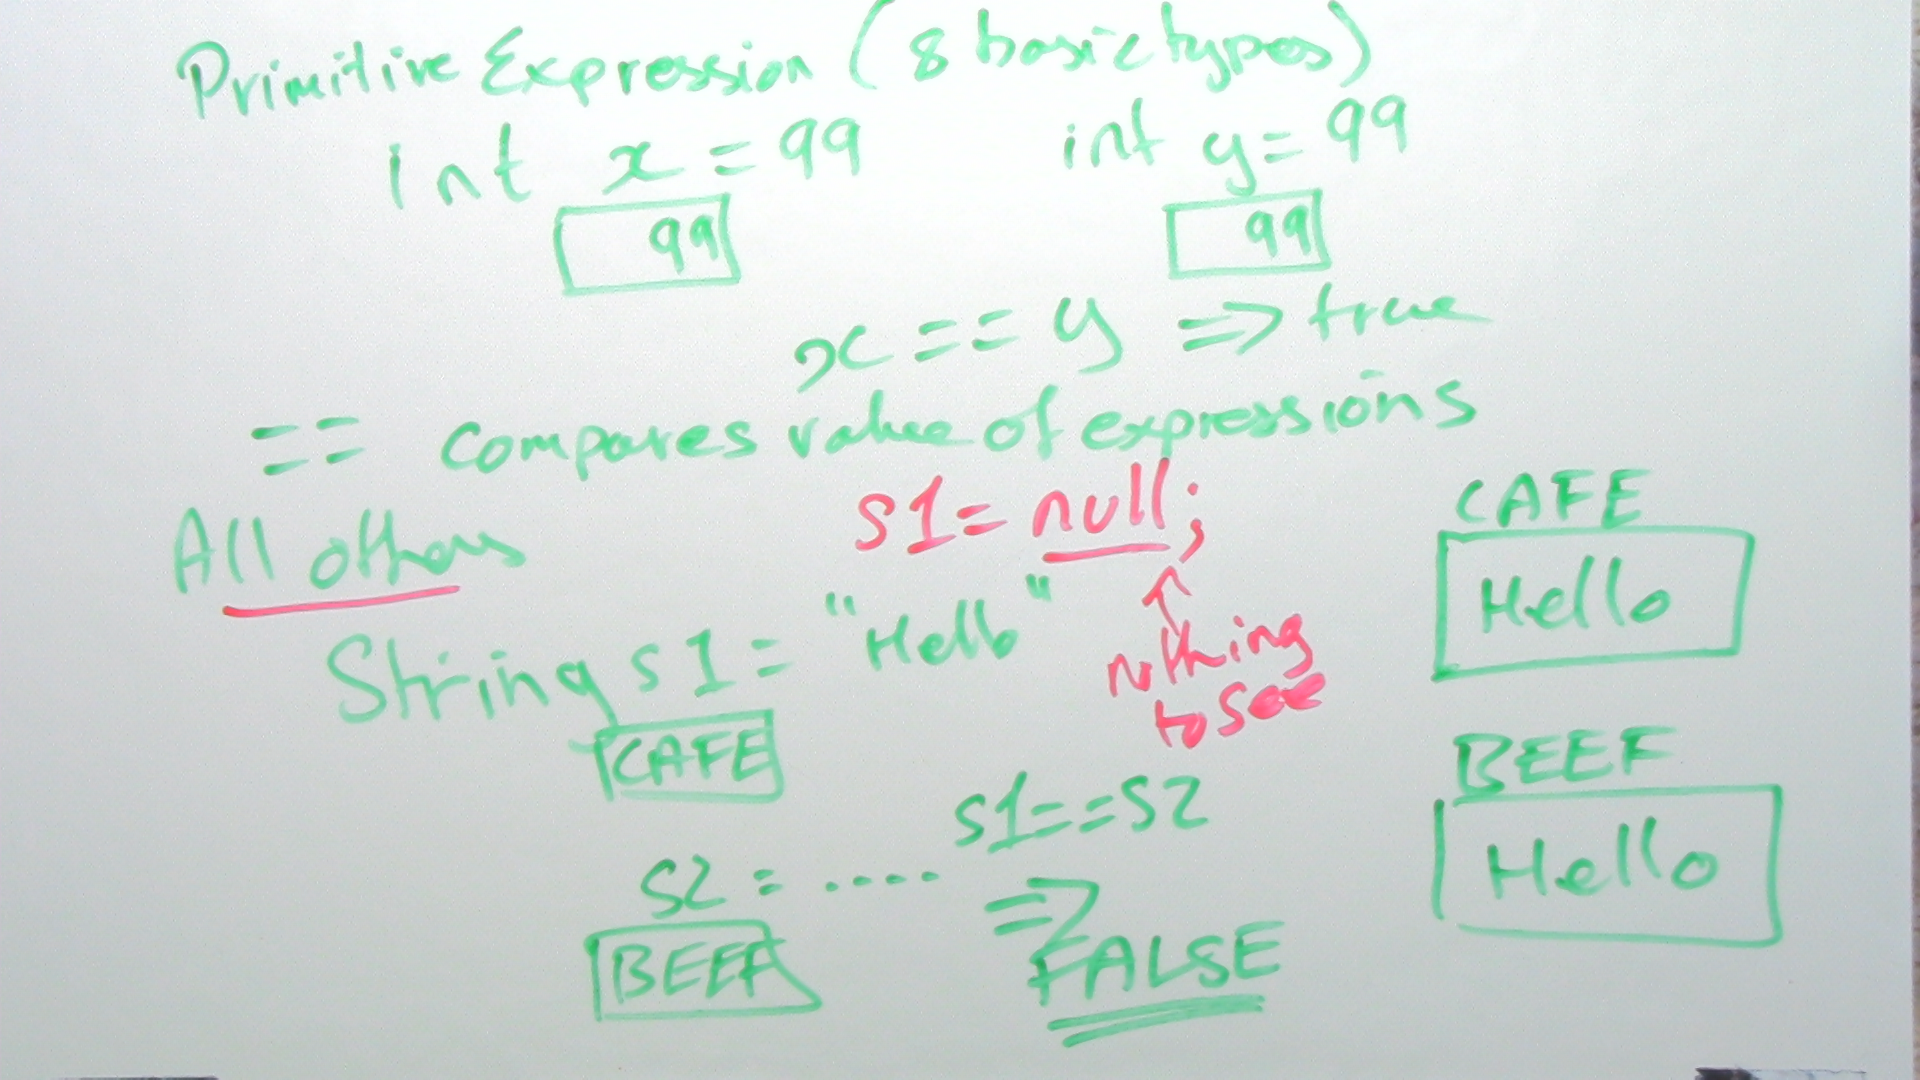 Primitive Expression (8 basic types)
int x = 99 int y = 99
99 99
x == y => true
== compares value of expressions
All others
s1 = null;
nothing
to see
String s1 = "Hello"
CAFE
s2 = ....
BEEF
s1==s2
=>
FALSE
CAFE
Hello
BEEF
Hello